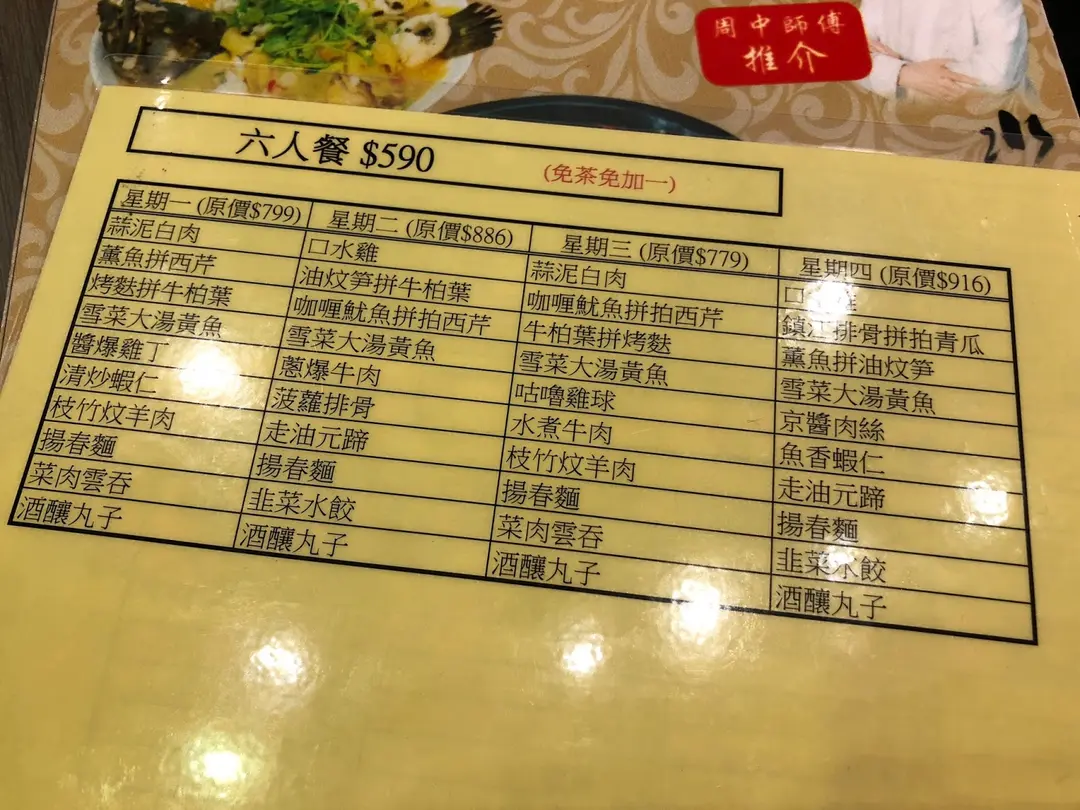 周中師傅
推介
六人餐 $590
(免茶免加一)
星期一 (原價$799)
蒜泥白肉
薰魚拼西芹
烤麩拼牛柏葉
雪菜大湯黃魚
醬爆雞丁
清炒蝦仁
枝竹炆羊肉
揚春麵
菜肉雲吞
酒釀丸子
星期二 (原價$886)
口水雞
油炆笋拼牛柏葉
咖喱魷魚拼拍西芹
雪菜大湯黃魚
蔥爆牛肉
菠蘿排骨
走油元蹄
揚春麵
韭菜水餃
酒釀丸子
星期三 (原價$779)
蒜泥白肉
咖喱魷魚拼拍西芹
牛柏葉拼烤麩
雪菜大湯黃魚
咕嚕雞球
水煮牛肉
枝竹炆羊肉
揚春麵
菜肉雲吞
酒釀丸子
星期四 (原價$916)
口水雞
鎮江排骨拼拍青瓜
薰魚拼油炆笋
雪菜大湯黃魚
京醬肉絲
魚香蝦仁
走油元蹄
揚春麵
韭菜水餃
酒釀丸子